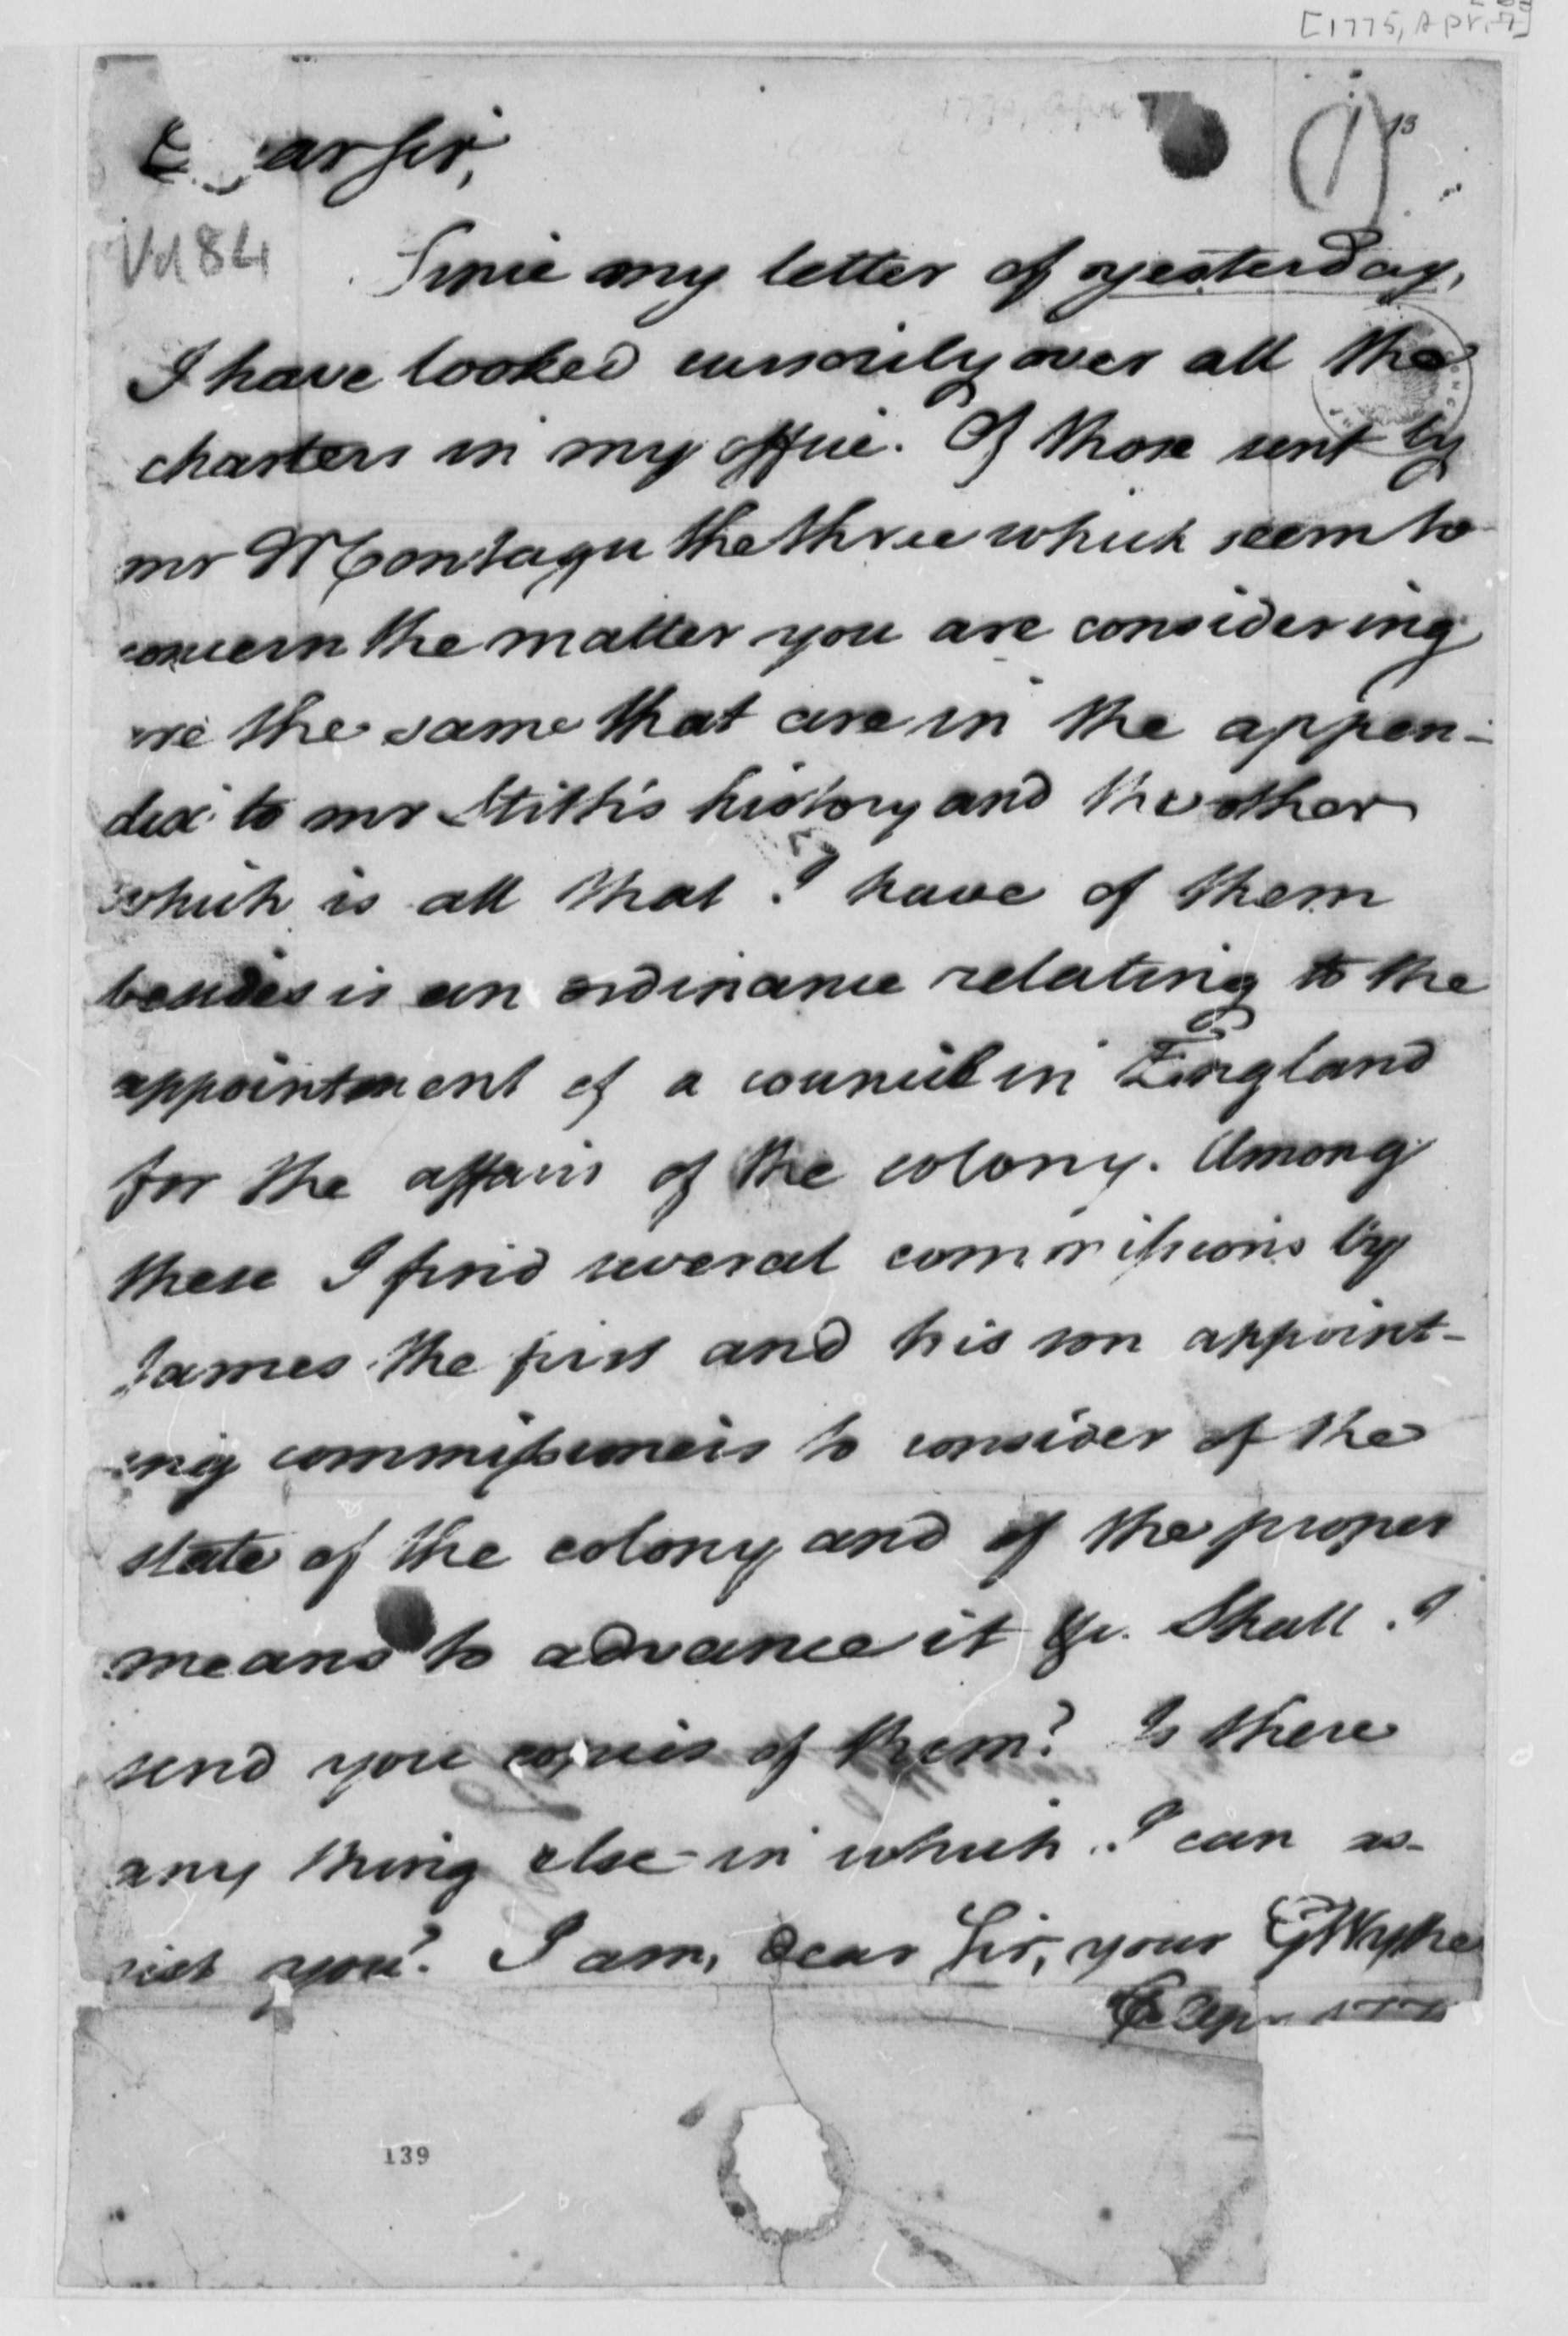 [1775, Apr. 7]
(1)
13
Dear Sir,
Vol 84
Since my letter of yesterday,
I have looked cursorily over all the
charters in my office. Of those sent by
mr Montagu the three which seem to
concern the matter you are considering
are the same that are in the appen-
dix to mr Stith's history and the other
which is all that I have of them
besides is an ordinance relating to the
appointment of a council in England
for the affairs of the colony. Among
these I find several commissions by
James the first and his son appoint-
ing commissioners to consider of the
state of the colony and of the proper
means to advance it &c. Shall I
send you copies of them? Is there
any thing else in which I can as-
sist you? I am, Dear Sir, your GWythe
Apr
139